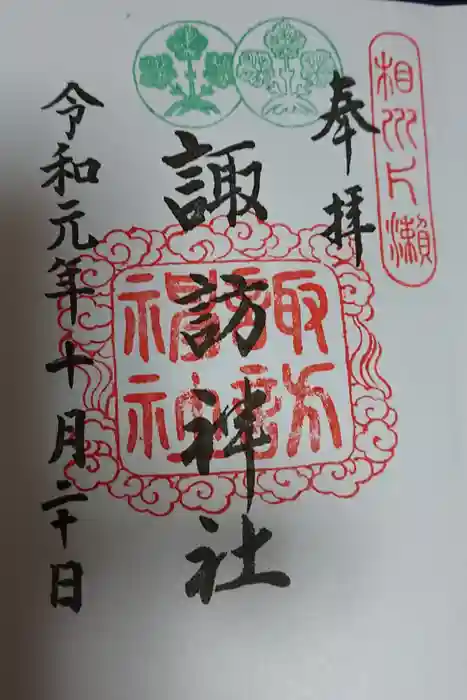 相州片瀬
奉拝
諏訪神社
令和元年十月二十日